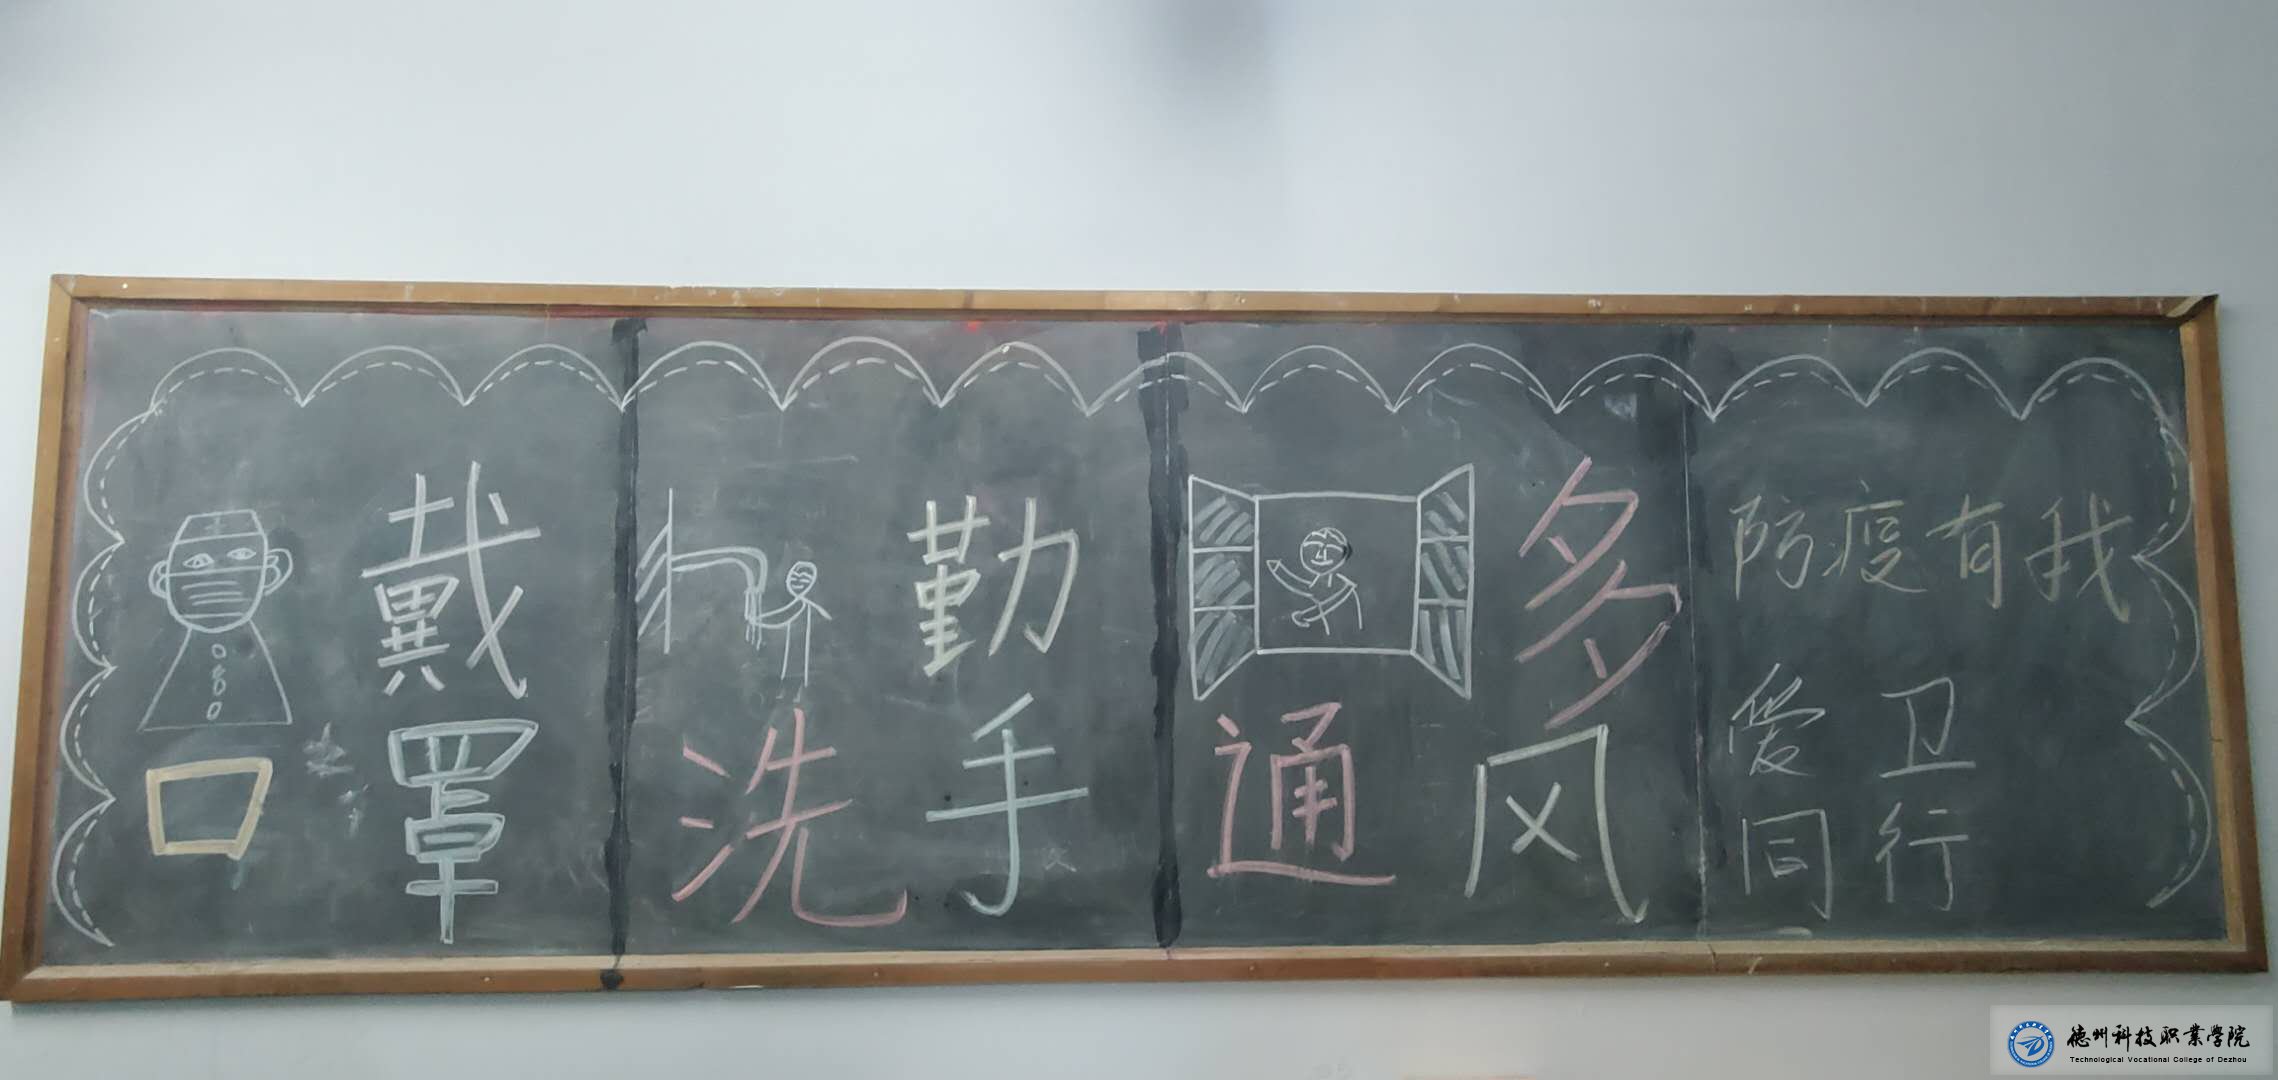 戴
口罩
勤
洗手
多
通风
防疫有我
爱卫
同行
德州科技职业学院
Technological Vocational College of Dezhou